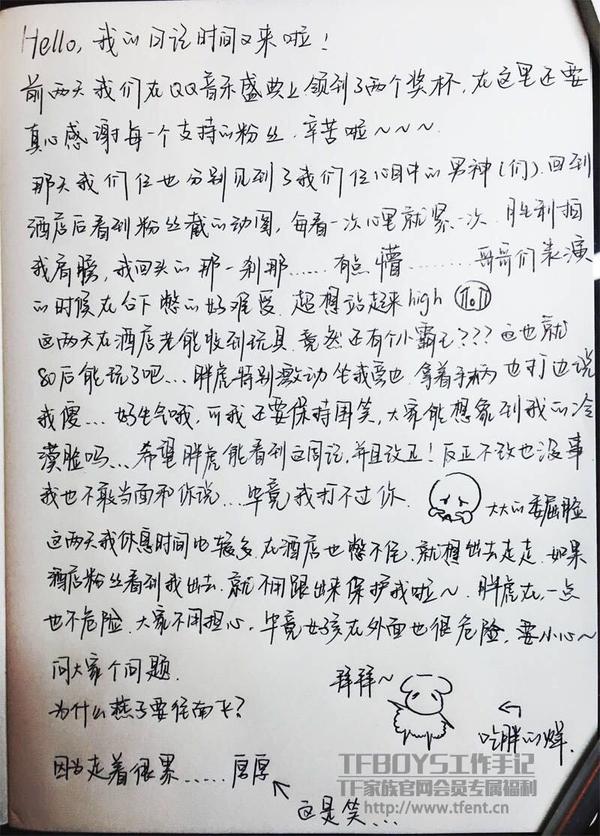 Hello, 我的周记时间又来啦！
前两天我们在QQ音乐盛典上领到了两个奖杯，在这里还要
真心感谢每一个支持的粉丝．辛苦啦～～～
那天我们仨也分别见到了我们仨心目中的男神（们）．回到
酒店后看到粉丝截的动图，每看一次心里就紧一次．胜利拍
我肩膀，我回头的那一刹那……有点懵………哥哥们表演
的时候在台下憋的好难受．超想站起来high
这两天在酒店老能收到玩具．竟然还有个小霸王？？？这也就
80后能玩了吧…胖虎特别激动坐我旁边．拿着手柄也打边说
我傻…好生气哦，可我还要保持围笑，大家能想象到我的冷
漠脸吗…希望胖虎能看到这周记，并且改正！反正不改也没事
我也不敢当面和你说…毕竟我打不过你．
大大的委屈脸
这两天我休息时间比较多．在酒店也憋不住．就想出去走走．如果
酒店粉丝看到我出去．就不用跟出来保护我啦～．胖虎在，一点
也不危险．大家不用担心，毕竟女孩在外面也很危险，要小心～
问大家个问题．
拜拜～
为什么燕子要往南飞？
吃胖的烊．
因为走着很累……厚厚
这是笑…
TFBOYS工作手记
TF家族官网会员专属福利
http://www.tfent.cn